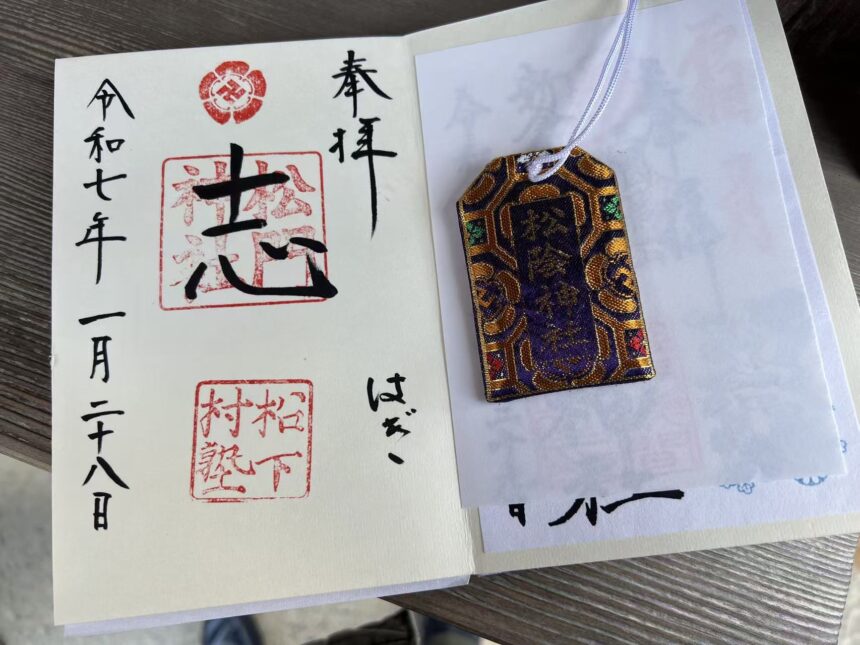 奉拝
はぎ
志
松門
神社
松下
村塾
令和七年 一月二十八日
松陰神社